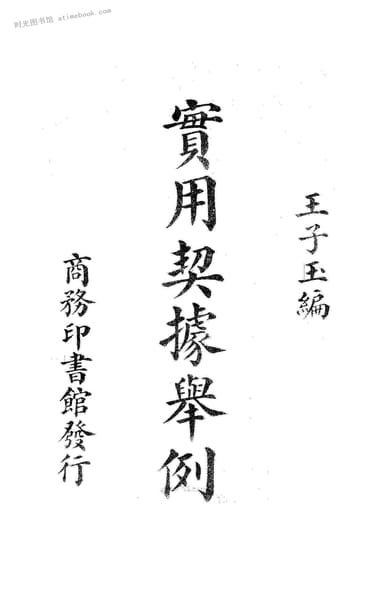 时光图书馆 atimebook.com
王子玉編
實用契據舉例
商務印書館發行